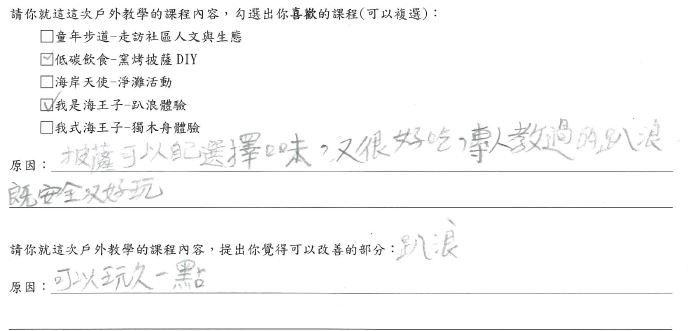 請你就這這次戶外教學的課程內容，勾選出你喜歡的課程(可以複選)：
□童年步道-走訪社區人文與生態
☑低碳飲食-窯烤披薩DIY
□海岸天使-淨灘活動
☑我是海王子-趴浪體驗
□我式海王子-獨木舟體驗
原因：披薩可以自己選擇口味，又很好吃，專人教過的趴浪
既安全又好玩
請你就這次戶外教學的課程內容，提出你覺得可以改善的部分：趴浪
原因：可以玩久一點